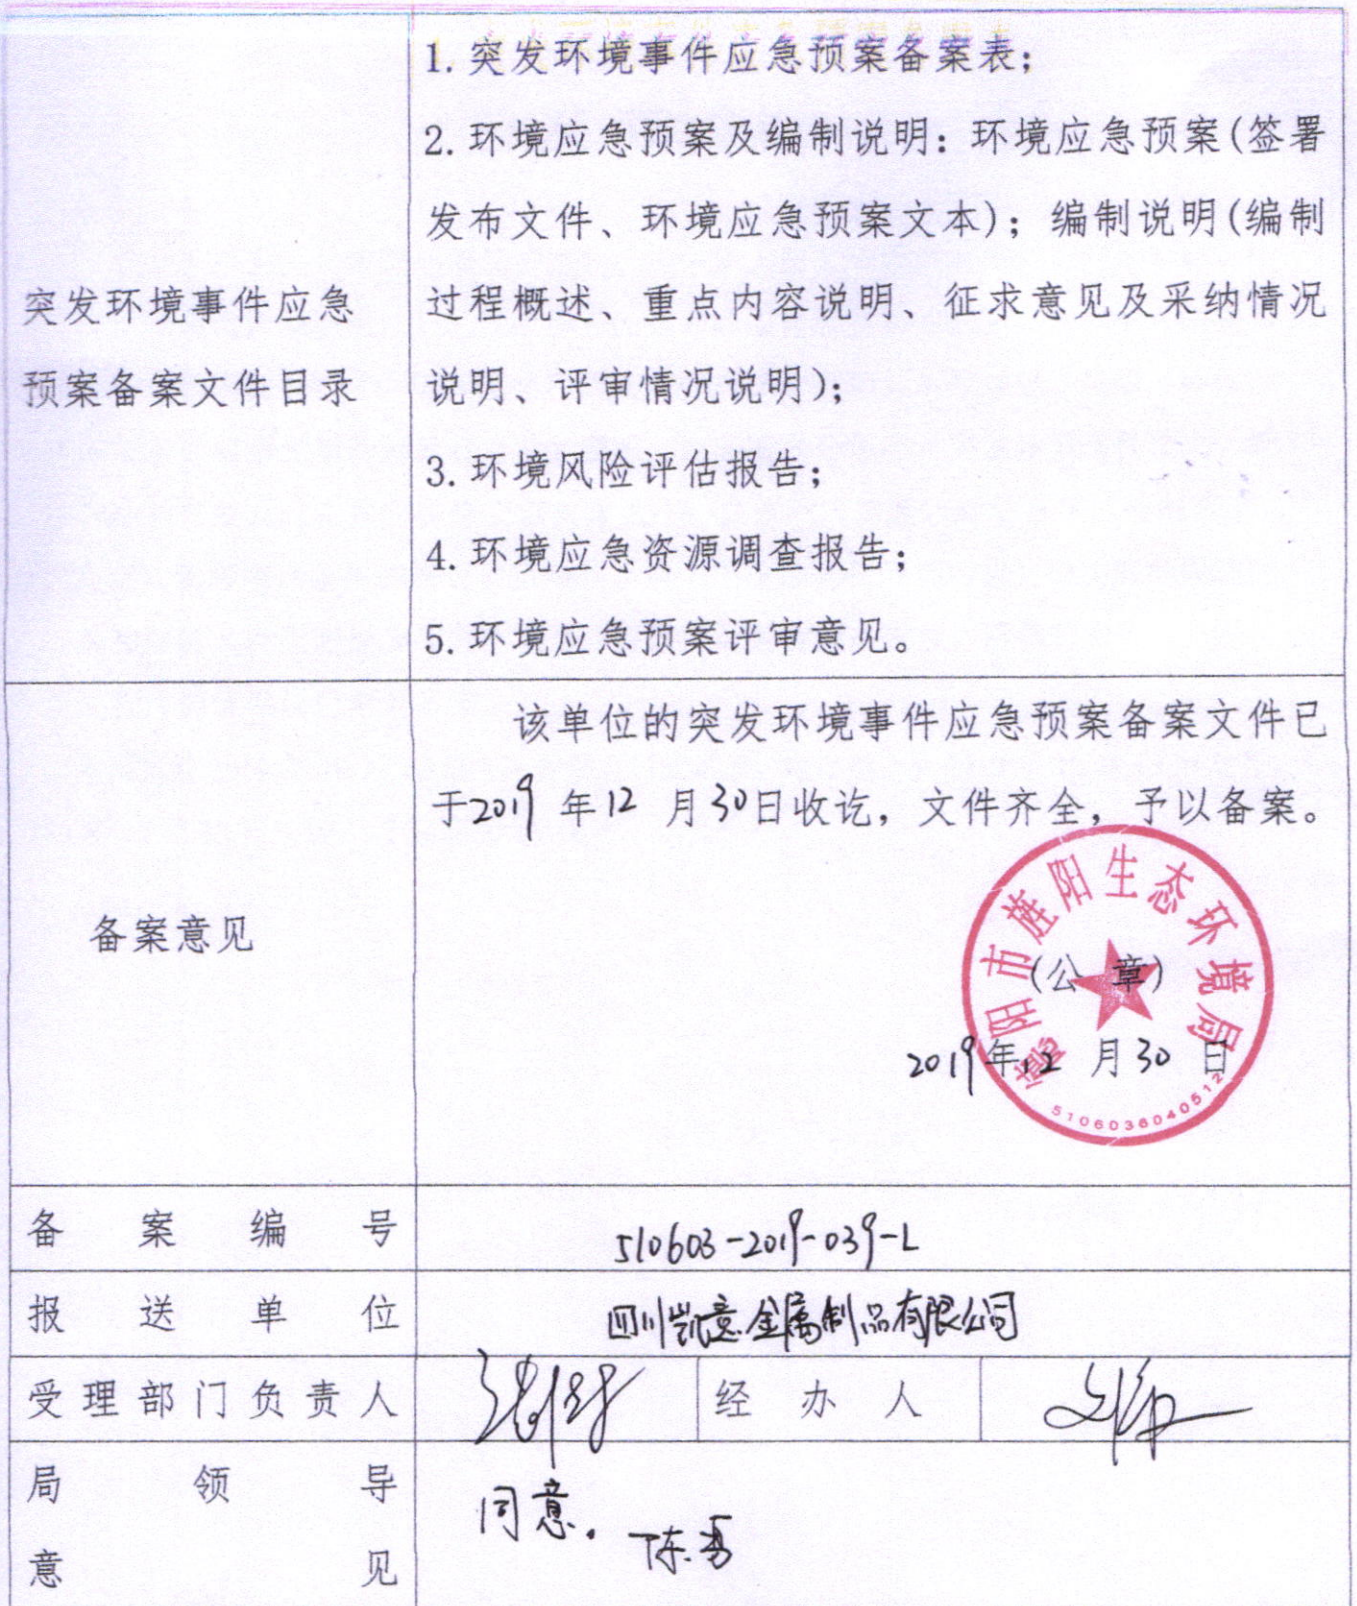 1.突发环境事件应急预案备案表；
2.环境应急预案及编制说明：环境应急预案(签署
发布文件、环境应急预案文本)；编制说明(编制
过程概述、重点内容说明、征求意见及采纳情况
说明、评审情况说明)；
3.环境风险评估报告；
4.环境应急资源调查报告；
5.环境应急预案评审意见。
突发环境事件应急
预案备案文件目录
该单位的突发环境事件应急预案备案文件已
于2019 年12 月30日收讫，文件齐全，予以备案。
备案意见
德阳市旌阳生态环境局
(公 章)
2019年12 月30 日
5106036040512
备案编号
510603-2019-039-L
报送单位
四川凯意金属制品有限公司
受理部门负责人
经办人
局领导
意见
同意。